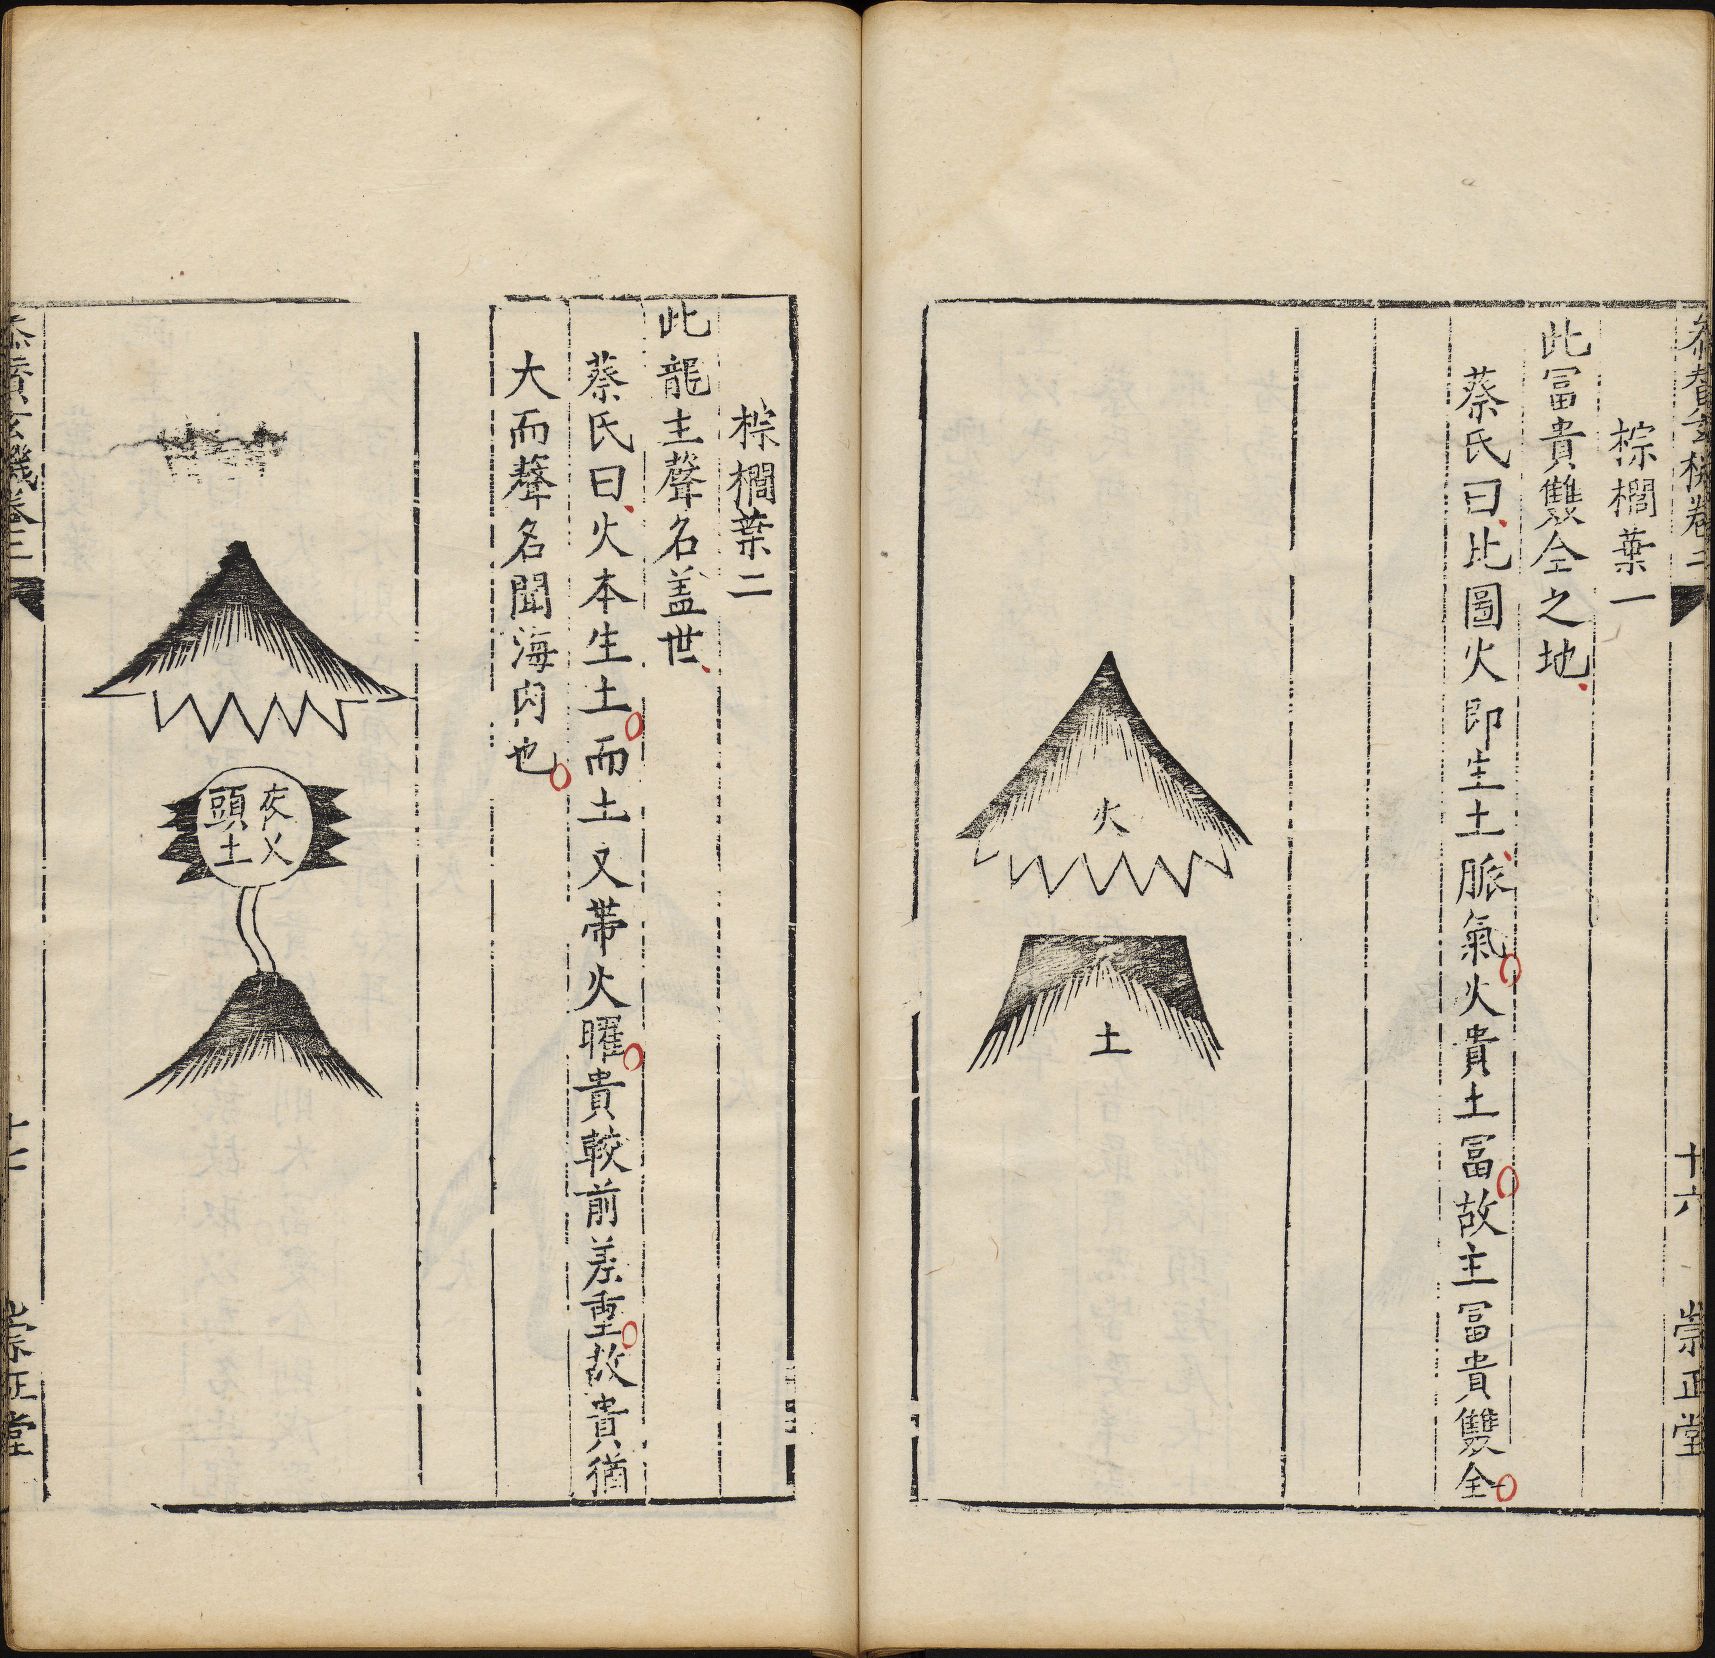 棕櫚葉一
此冨貴雙全之地
蔡氏曰此圖火即生土脈氣火貴土冨故主冨貴雙全
火
土
十六
崇正堂
棕櫚葉二
此龍主聲名盖世
蔡氏曰火本生土而土又帶火曜貴較前差重故貴猶
大而聲名聞海內也
夜叉
頭土
崇正堂